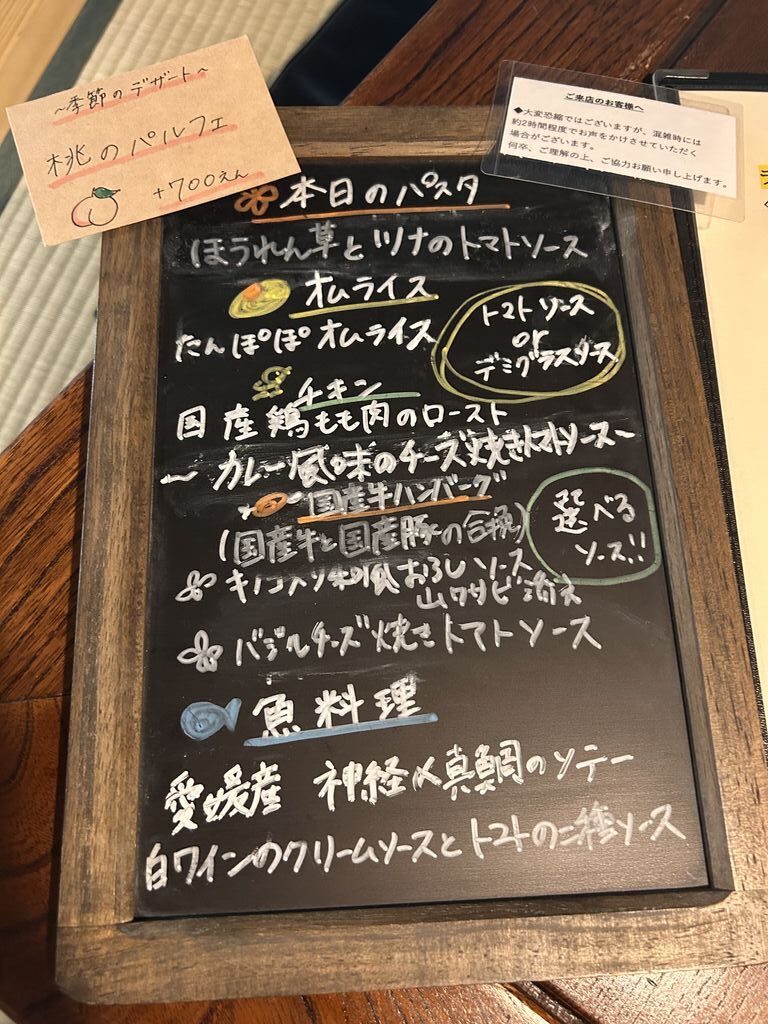 ~季節のデザート~
桃のパルフェ
+700えん
ご来店のお客様へ
◆大変恐縮ではございますが、混雑時には
約2時間程度でお声をかけさせていただく
場合がございます。
何卒、ご理解の上、ご協力お願い申し上げます。
本日のパスタ
ほうれん草とツナのトマトソース
オムライス
たんぽぽオムライス
トマトソース
or
デミグラスソース
チキン
国産鶏もも肉のロースト
~カレー風味のチーズ焼きトマトソース~
国産牛ハンバーグ
(国産牛と国産豚の合挽)
選べる
ソース!!
キノコ入り和風おろしソース
山ワサビ添え
バジルチーズ焼きトマトソース
魚料理
愛媛産 神経〆真鯛のソテー
白ワインのクリームソースとトマトの二種ソース